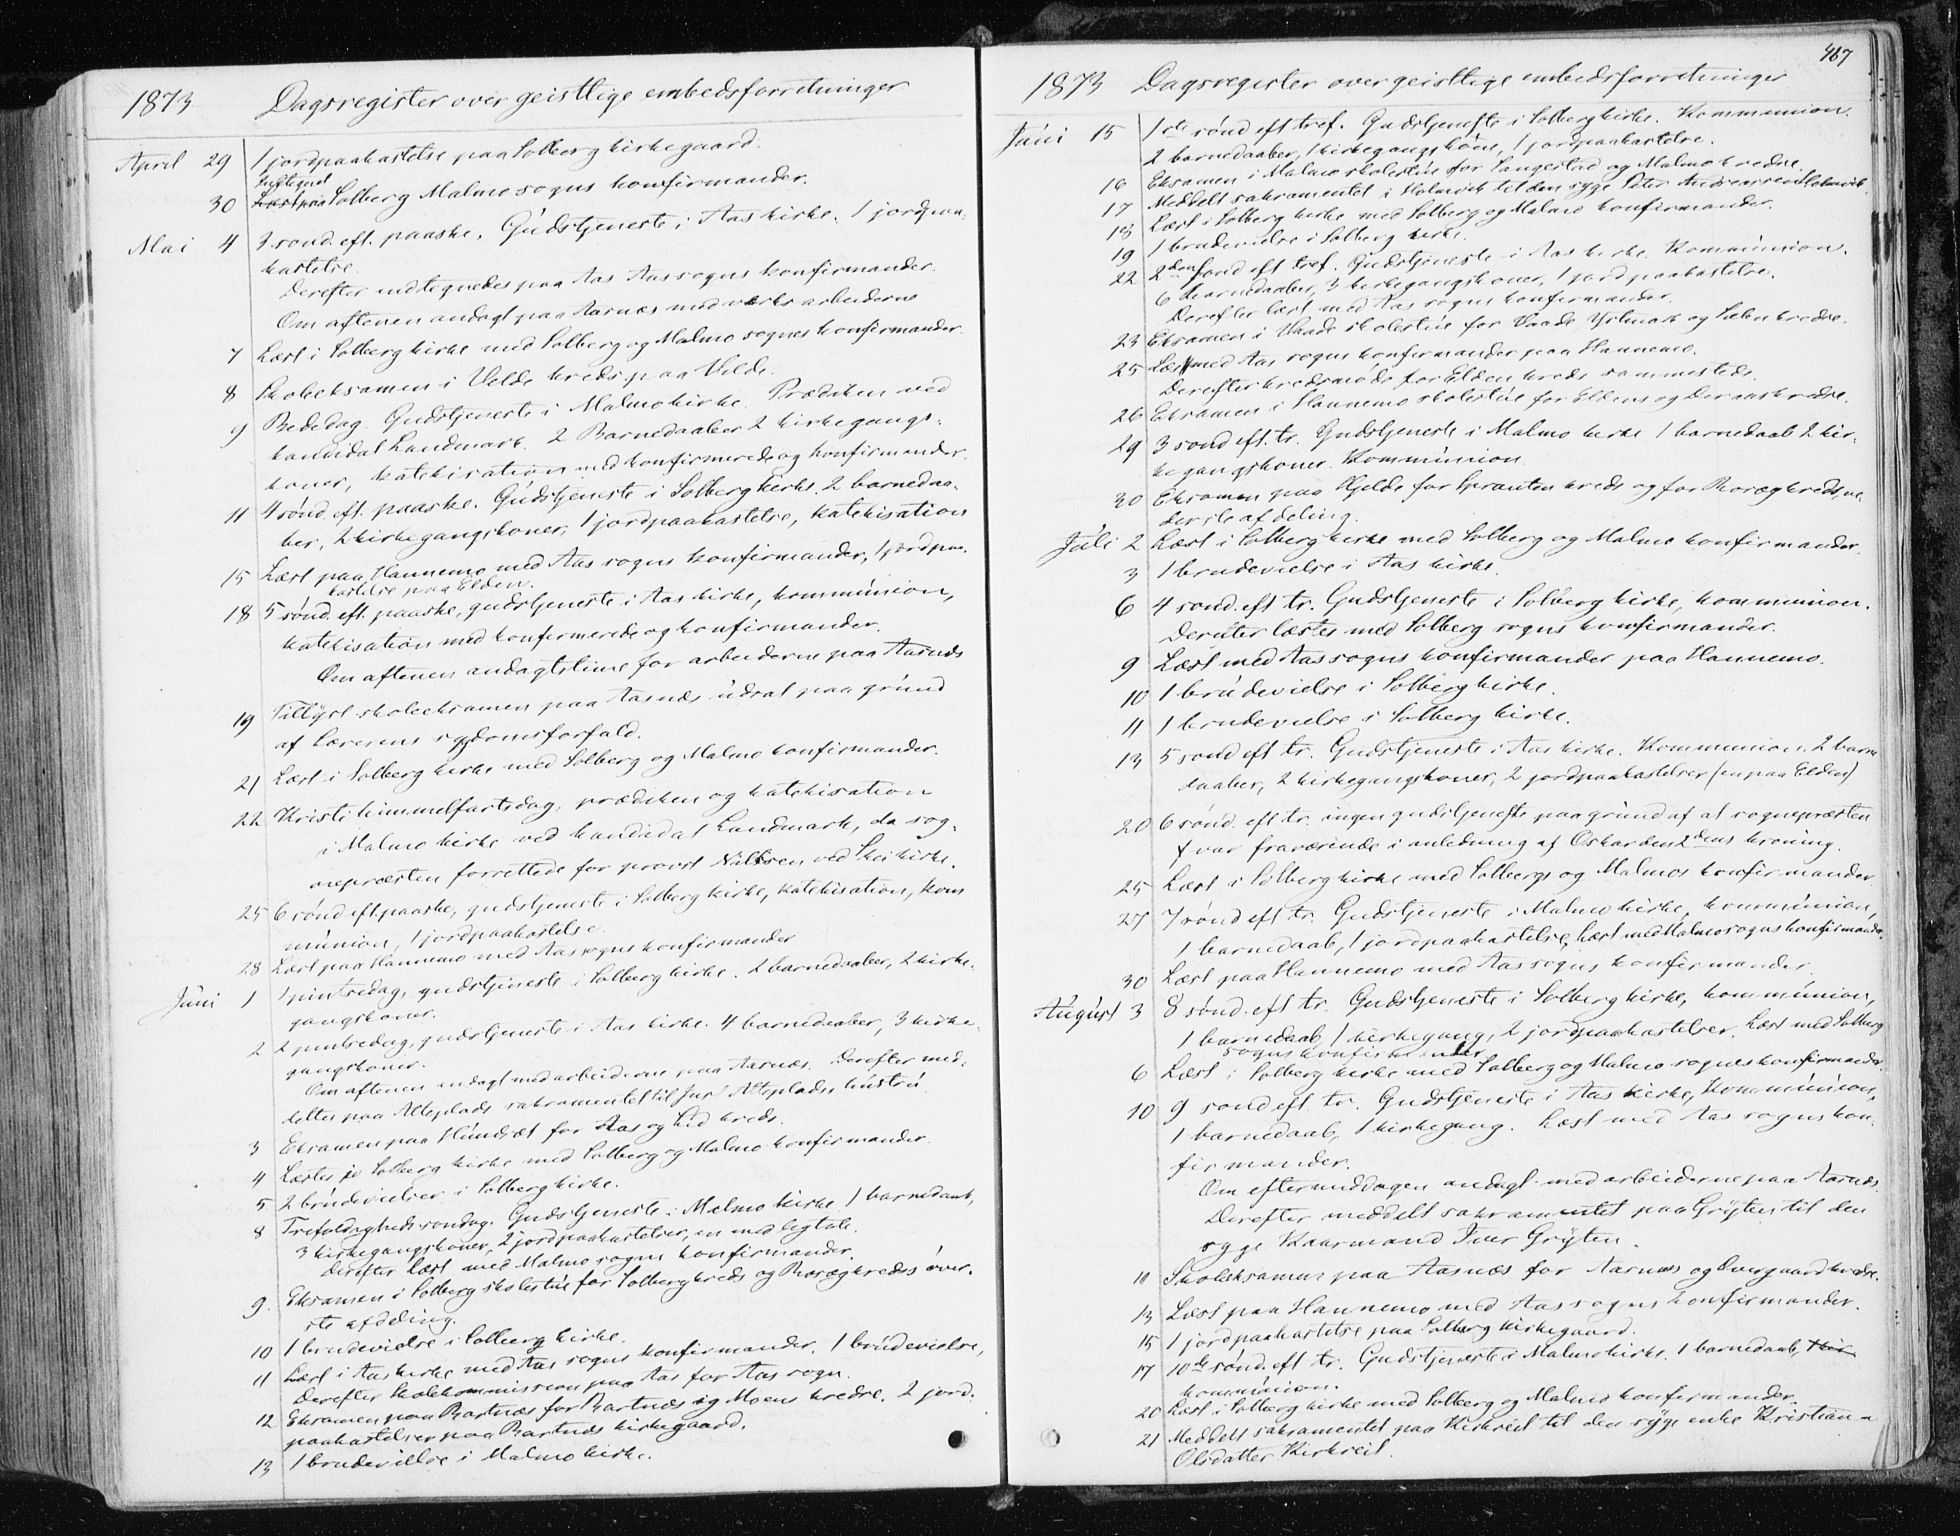 1873 Dagsregister over geistlige embedsforretninger
April 29 1 jordpaakastelse paa Solberg kirkegaard.
30 Indtegnet Læst paa Solberg Malmo sogns konfirmander.
Mai 4 3 sønd. eft. paaske. Gudstjeneste i Aas kirke. 1 jordpaa-
kastelse.
Derefter indtegnedes paa Aas Aas sogns konfirmander.
Om aftenen andagt paa Aasnæs med værksarbeiderne
7 Læst i Solberg kirke med Solberg og Malmo sognes konfirmander.
8 Skoleeksamen i Velde kreds paa Velde.
9 Bededag. Gudstjeneste i Malmo kirke. Prædiken ved
kandidat Landmark. 2 Barnedaaber 2 kirkegangs-
koner, katekisation med konfirmerede og konfirmander.
11 4 sønd. eft. paaske. Gudstjeneste i Solberg kirke. 2 barnedaa-
ber, 2 kirkegangskoner, 1 jordpaakastelse, katekisation
15 Læst paa Hannemo med Aas sogns konfirmander, 1 jordpaa-
kastelse paa Elden.
18 5 sønd. eft. paaske, gudstjeneste i Aas kirke, kommunion,
katekisation med konfirmerede og konfirmander.
Om aftenen andagtstime for arbeiderne paa Aasnæs
19 Tillyst skoleeksamen paa Aasnæs udsat paa grund
af Lærerens sygdomsforfald.
21 Læst i Solberg kirke med Solberg og Malmo konfirmander.
22 Kristi himmelfartsdag, prædiken og katekisation
i Malmo kirke ved kandidat Landmark, da sog-
nepræsten forrettede for provst Nilssen ved Skei kirke.
25 6 sønd eft. paaske, gudstjeneste i Solberg kirke, katekisation, kom
munion, 1 jordpaakastelse.
28 Læst paa Hannemo med Aas sogns konfirmander
Juni 1 1 pintsedag, gudstjeneste i Solberg kirke. 2 barnedaaber, 2 kirke-
gangskoner.
2 2 pintsedag, gudstjeneste i Aas kirke. 4 barnedaaber, 3 kirke-
gangskoner.
Om aftenen andagt med arbeiderne paa Aasnæs. Derefter med-
deltes paa Alteplads sakramentet til Alteplads hustru
3 Eksamen paa for Aas og Lid kreds.
4 Læstes i Solberg kirke med Solberg og Malmo konfirmander.
5 2 brudevielser i Solberg kirke.
8 Trefoldigheds søndag. Gudstjeneste i Malmo kirke 1 barnedaab,
3 kirkegangskoner, 2 jordpaakastelser, en med ligtale.
Derefter Læst med Malmo sogns konfirmander.
9. Eksamen i Solberg skolestue for Solberg kreds og kreds's øver-
ste afdeling.
10 1 brudevielse i Solberg kirke.
11 Læst i Aas kirke med Aas sogns konfirmander. 1 brudevielse,
Derefter skolekommission paa Aas for Aas sogn.
12 Eksamen paa Bartnæs for Bartnæs og Moens kredse. 2 jord-
paakastelser paa Bartnæs kirkegaard.
13 1 brudevielse i Malmo kirke.
467
1873 Dagsregister over geistlige embedsforretninger
Juni 15 1ste sønd eft tref. Gudstjeneste i Solberg kirke. Kommunion.
2 barnedaaber, 1 kirkegangskone, 1 jordpaakastelse.
16 Eksamen i Malmo skolestue for og Malmo kredse.
17 Meddelt sakramentet i Holmvik til den syge Peter Andreassen Holmvik.
18 Læst i Solberg kirke med Solberg og Malmo konfirmander.
19 1 brudevielse i Solberg kirke.
22 2den sønd eft tref. Gudstjeneste i Aas kirke. Kommunion.
6 barnedaaber, 3 kirkegangskoner, 1 jordpaakastelse.
Derefter læst med Aas sogns konfirmander.
23 Eksamen i Vaade skolestue for Vaade, og kredse.
25 Læst med Aas sogns konfirmander paa Hannemo.
Derefter kredsmøde for Elden kreds sammesteds.
26 Eksamen i Hannemo skolestue for Eldens og kredse.
29 3 sønd eft. tr. Gudstjeneste i Malmo kirke 1 barnedaab 2 kir-
kegangskoner. Kommunion
30 Eksamen paa for kreds og for kreds, ne-
derste afdeling.
Juli 2 Læst i Solberg kirke med Solberg og Malmo konfirmander.
3 1 brudevielse i Aas kirke.
6 4 sønd. eft tr. Gudstjeneste i Solberg kirke, kommunion.
Derefter læstes med Solberg sogns konfirmander.
9 Læst med Aas sogns konfirmander paa Hannemo.
10 1 brudevielse i Solberg kirke.
11 1 brudevielse i Solberg kirke.
13 5 sønd eft tr. Gudstjeneste i Aas kirke. Kommunion. 2 barne
daaber, 2 kirkegangskoner, 2 jordpaakastelser (en paa Elden)
20 6 sønd. eft tr. ingen gudstjeneste paa grund af at sognepræsten
var fraværende i anledning af Oskar den 2dens kroning.
25 Læst i Solberg kirke med Solbergs og Malmos konfirmander.
27 7 sønd eft tr. Gudstjeneste i Malmo kirke, kommunion,
1 barnedaab, 1 jordpaakastelse, Læst med Malmo sogns konfirmander.
30 Læst paa Hannemo med Aas sogns konfirmander.
August 3 8 sønd. eft tr. Gudstjeneste i Solberg kirke, kommunion,
1 barnedaab, 1 kirkegang, 2 jordpaakastelser. Læst med Solberg
sogns konfirmander
6 Læst i Solberg kirke med Solberg og Malmo sognes konfirmander
10 9 sønd eft. tr. Gudstjeneste i Aas kirke, Kommunion,
1 barnedaab, 1 kirkegang. Læst med Aas sogns kon-
firmander.
Om eftermiddagen andagt med arbeiderne paa Aasnæs.
Derefter meddelt sakramentet paa Gryten til den
syge Kaarmand Iver Grÿten.
11 Skoleeksamen paa Aasnæs for Aasnæs og Overgaard kredse.
13 Læst paa Hannemo med Aas sogns konfirmander.
15 1 jordpaakastelse paa Solberg kirkegaard.
17 10de sønd. eft tr. Gudstjeneste i Malmo kirke. 1 barnedaab,
kommunion.
20 Læst i Solberg kirke med Solberg og Malmo konfirmander.
21 Meddelt sakramentet paa Kirkreit til den syge enke Kristian-
Olsdatter Kirkreit.